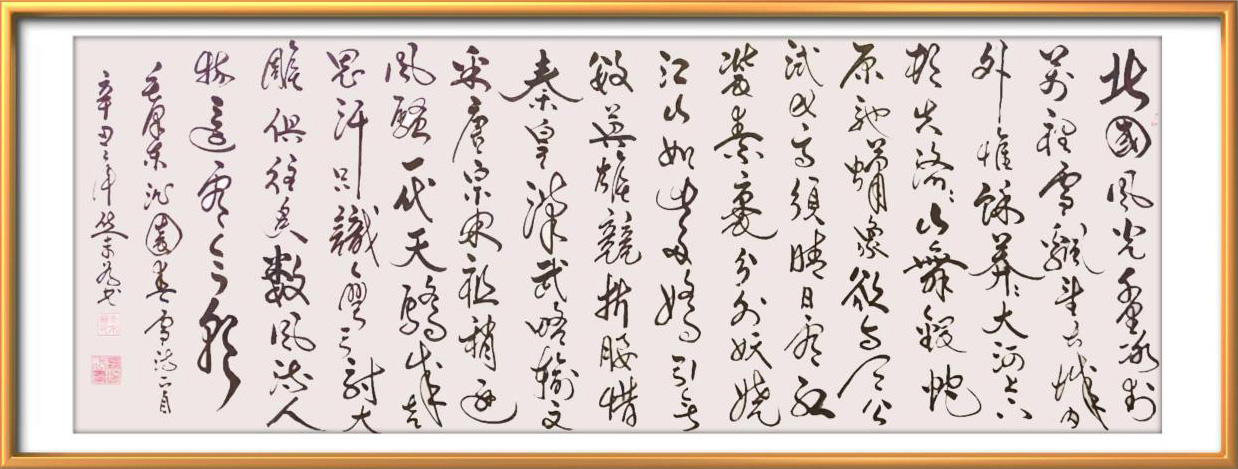 北國風光千里冰封
萬程雪飄望長城内
外惟餘莽々大河上下
頓失滔々山舞銀蛇
原馳蠟象欲與天公
試比高須晴日看紅
裝素裹分外妖嬈
江山如此多嬌引無
數英雄競折腰惜
秦皇漢武略輸文
采唐宗宋祖稍遜
風騷一代天驕成吉
思汗只識彎弓射大
雕俱往矣數風流人
物還看今朝
毛澤東沁園春雪詩一首
辛丑年書